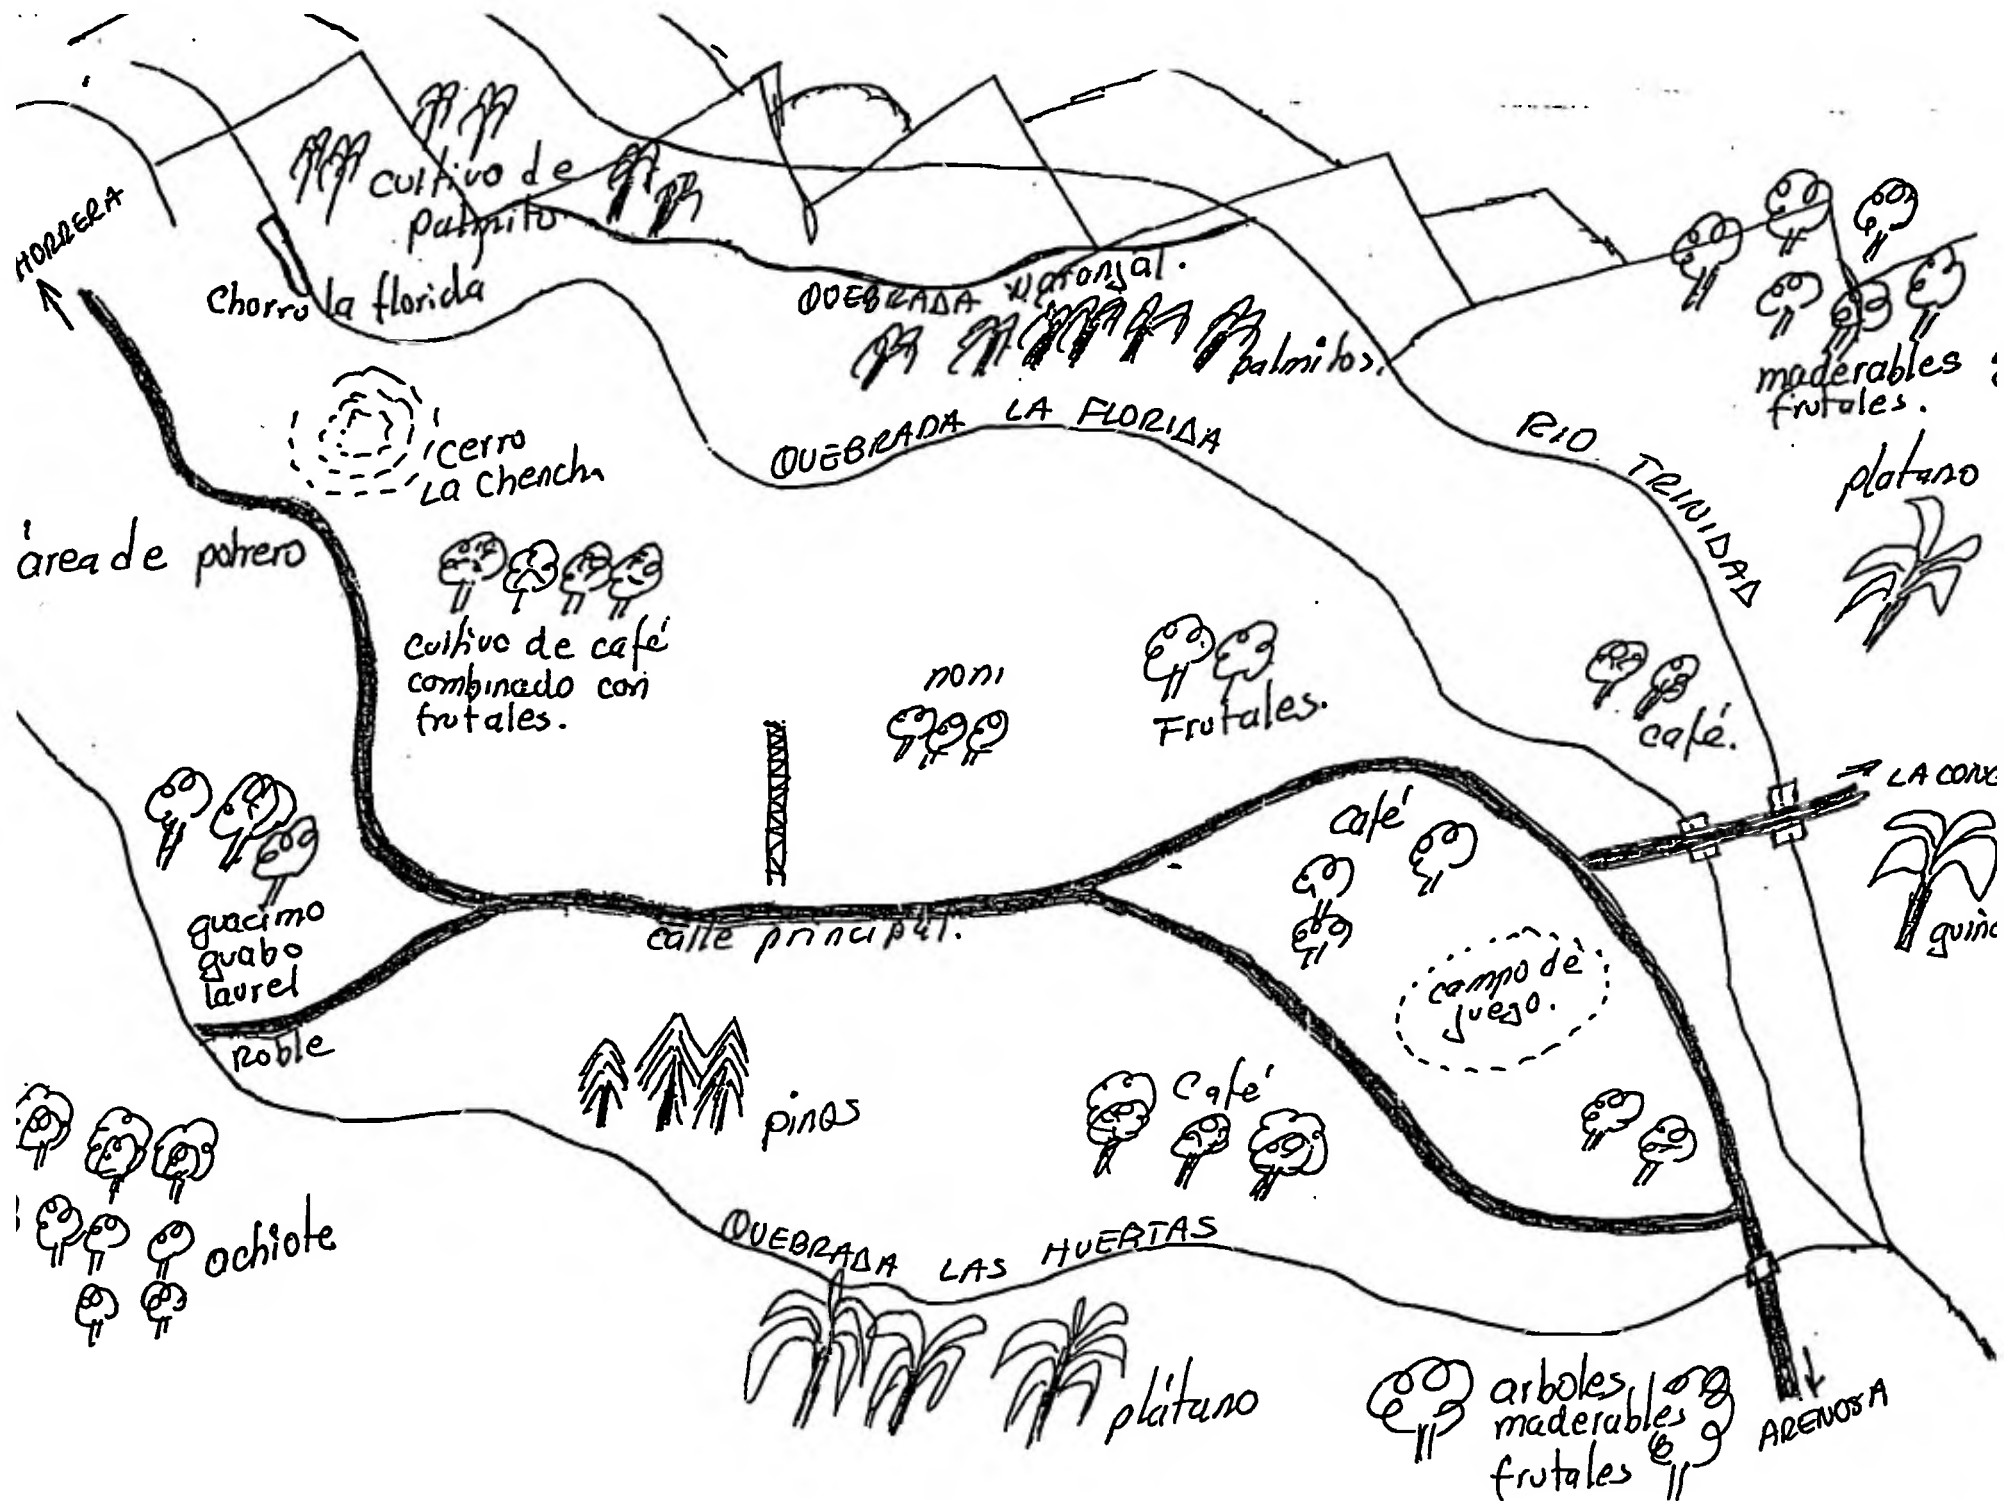 HORRERA
cultivo de
palmito
Chorro la florida
QUEBRADA Naranjal.
palmitos.
maderables
frutales.
QUEBRADA LA FLORIDA
RIO TRINIDAD
platano
cerro
La Chencha
área de potrero
cultivo de café
combinado con
frutales.
noni
Frutales.
café.
LA CONC
café
guacimo
guabo
laurel
calle principal.
campo de
juego.
guine
Roble
pinos
Café
achiote
QUEBRADA LAS HUERTAS
plátano
arboles
maderables
frutales
ARENOSA